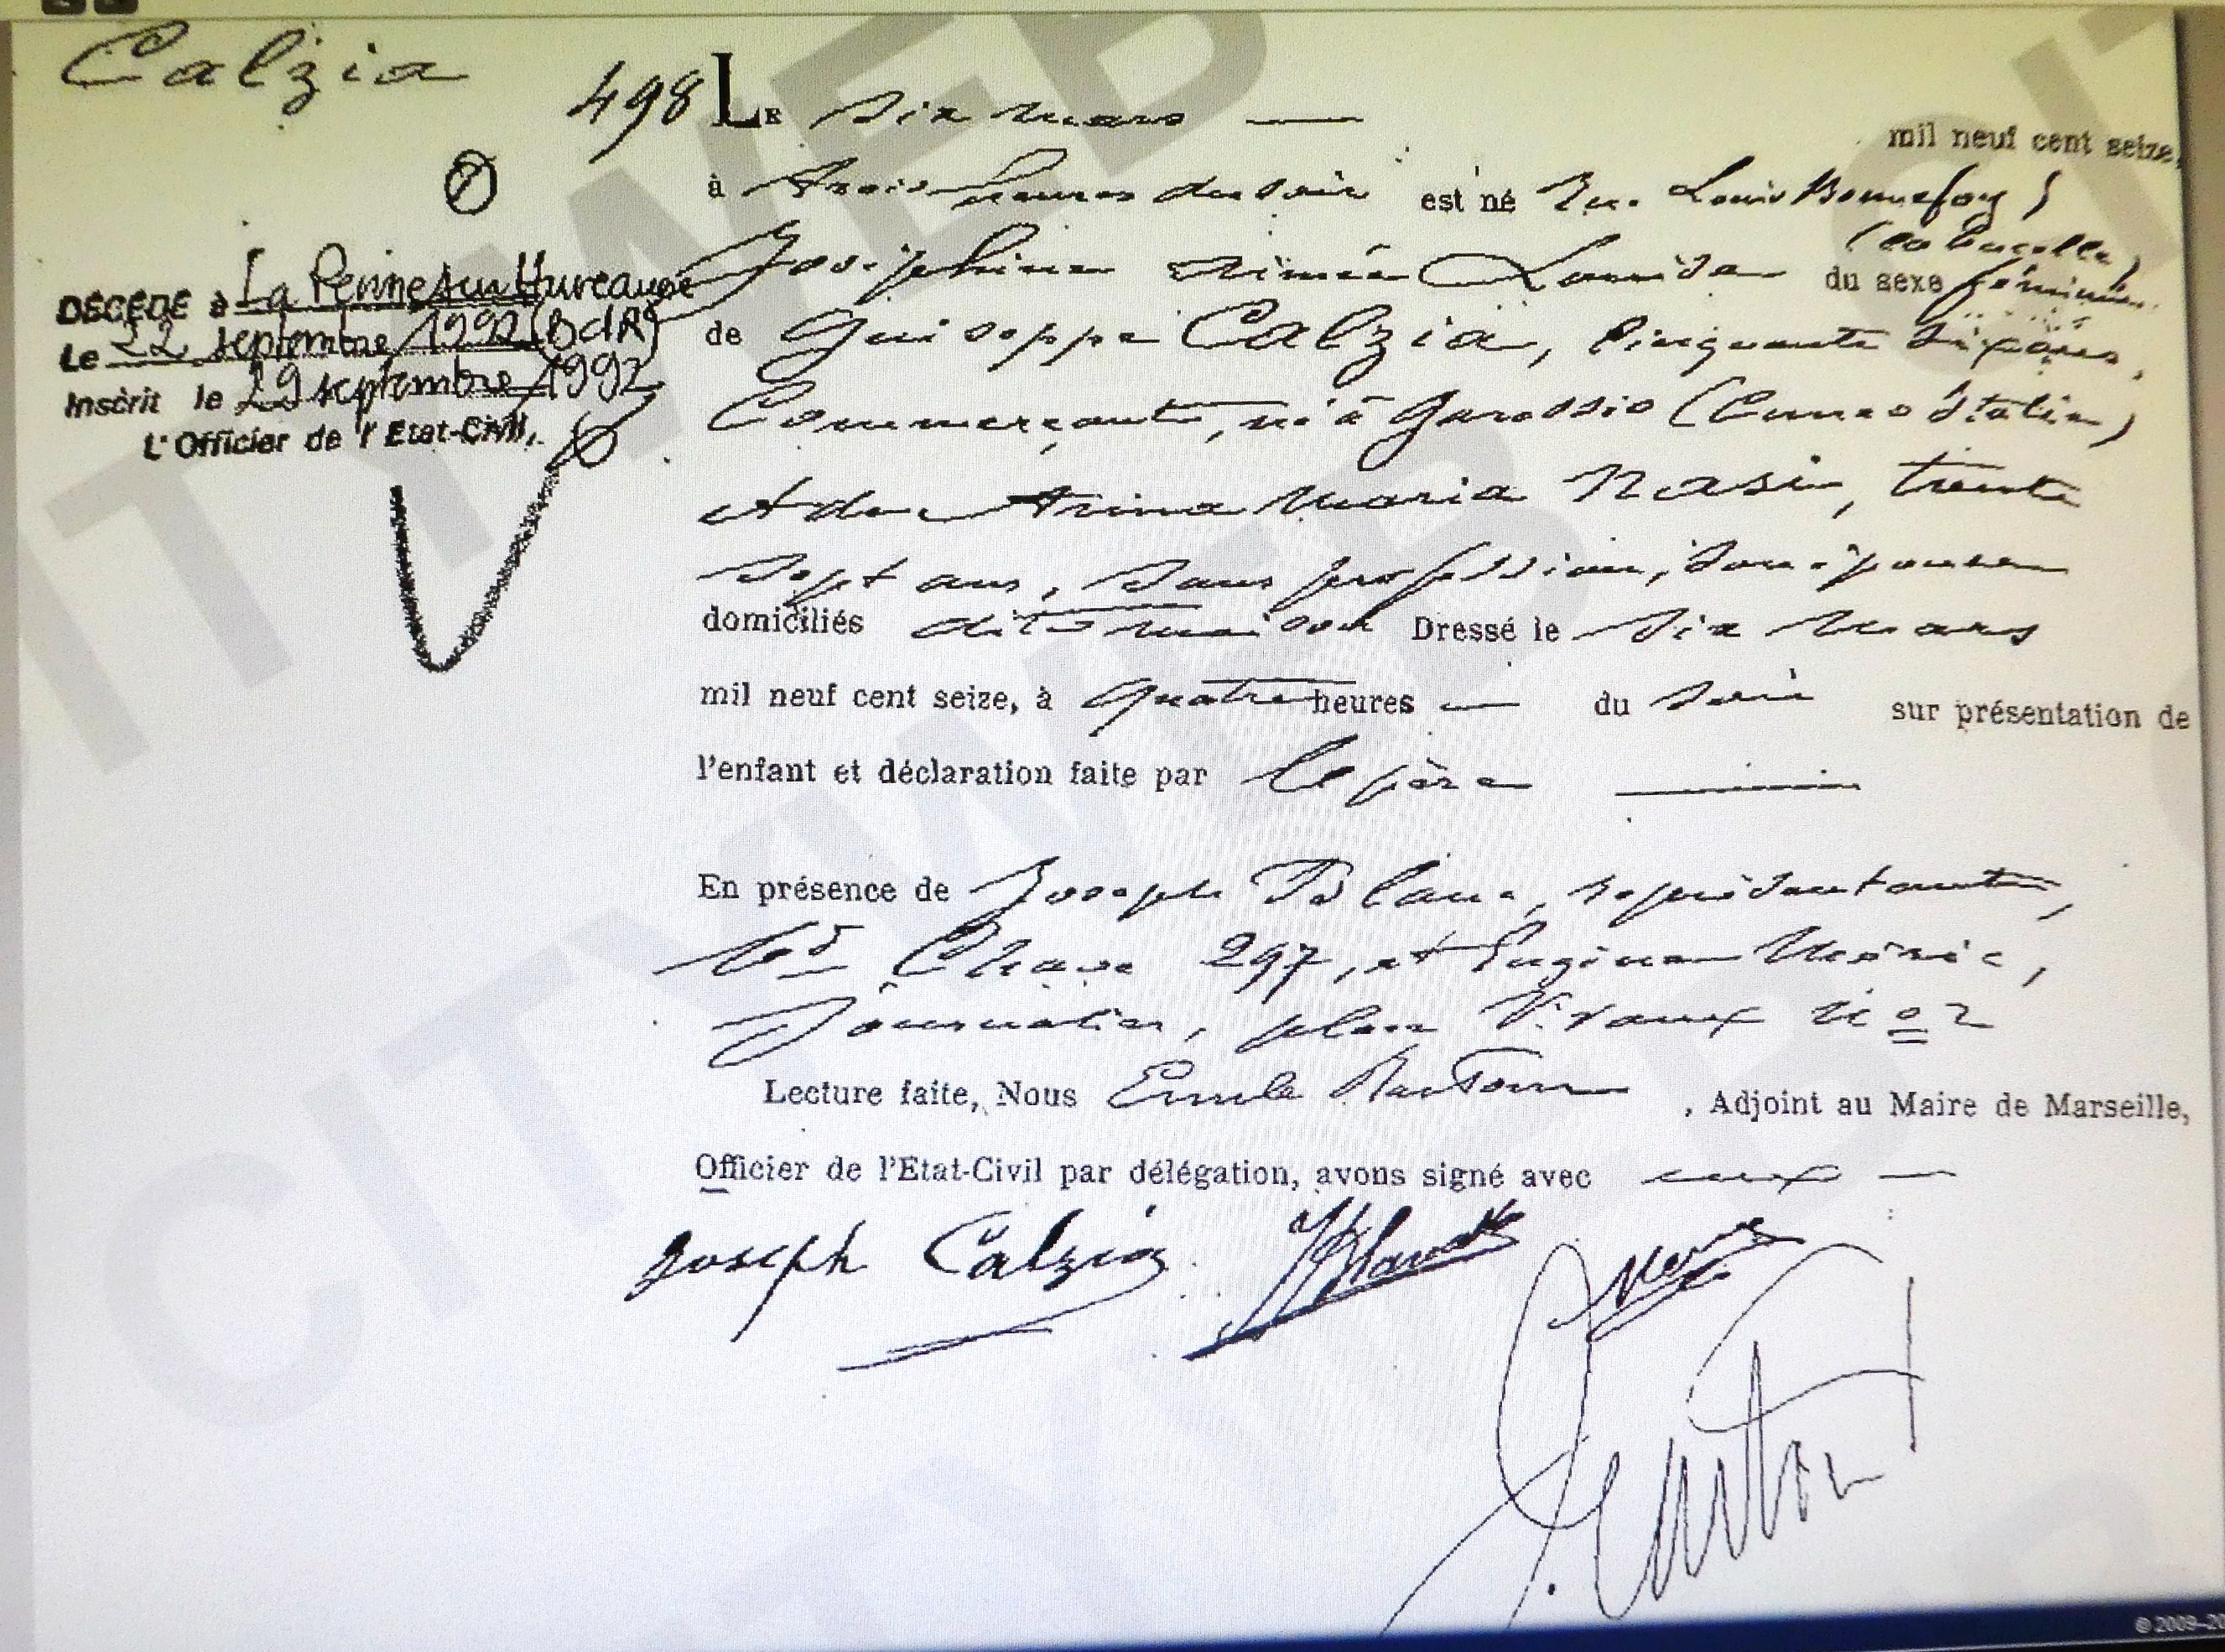 Calzia
498 LE six mars — mil neuf cent seize,
à trois heures du soir est né Rue Louis Bonnefoy
Joséphine Aimée Louise du sexe féminin
de Guiseppe Calzia, cinquante six ans,
Commerçant, né à Garessio (Cuneo Italie)
et de Anna Maria Nasi, trente
sept ans, sans profession, son épouse
domiciliés dite maison Dressé le six mars
mil neuf cent seize, à quatre heures — du soir sur présentation de
l'enfant et déclaration faite par le père
En présence de Joseph Blanc, représentant,
Bd Chave 297, et Eugène Méric,
Journalier, place Vivaux no 2
Lecture faite, Nous Emile , Adjoint au Maire de Marseille,
Officier de l'Etat-Civil par délégation, avons signé avec eux —
Joseph Calzia
DÉCÉDÉ à La Penne sur Huveaune
Le 22 septembre 1992 (BdR)
Inscrit le 29 septembre 1992
L'Officier de l'Etat-Civil,
CITYWEB
© 2009-20